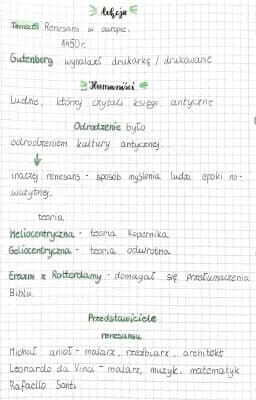 lekcja
Temat: Renesans w europie.
1450r.
Gutenberg wynalazł drukarkę / drukowanie
Humaniści
Ludzie, którzy czytali księgi antyczne
Odrodzenie było
odrodzeniem kultury antycznej
inaczej renesans - sposób myślenia ludzi epoki no-
wożytnej.
teoria
Heliocentryczna - teoria Kopernika
Geliocentryczna - teoria odwrotna
Erazm z Rotterdamy - domagał się przetłumaczenia
Biblii.
Przedstawiciele
renesansu
Michał anioł - malarz, rzeźbiarz, architekt
Leonardo da Vinci - malarz, muzyk, matematyk
Rafaello Santi